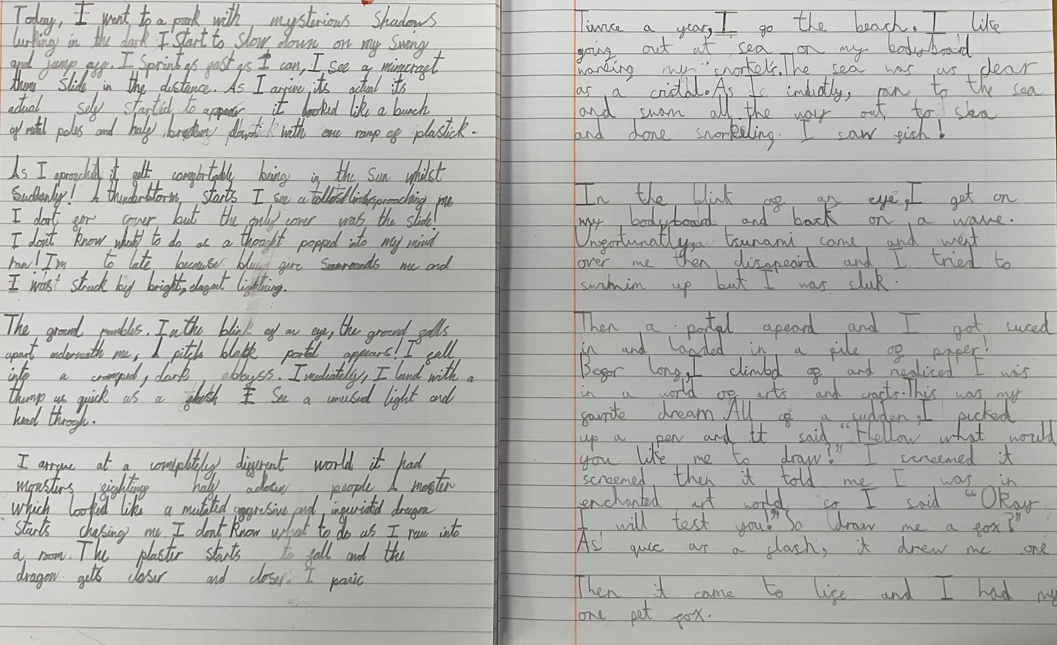 Today, I went to a park with mysterious Shadows
lurking in the dark I start to slow down on my swing
and jump off. I sprint as fast as I can, I see a mincraft
them slide in the distance. As I arrive its actual its
actual sely started to appear it looked like a bunch
of metal poles and half broken plastick with one ramp of plastick.
As I aproached it felt comfortably being in the sun whilst
Suddenly! A thunderstorm starts I see a approaching me
I dont for cover but the only cover was the slide!
I dont know what to do as a thought popped into my mind
run! I'm to late because blue fire surrounds me and
I was struck by bright, elagant lightning.
The ground rumbles. In the blink of an eye, the ground falls
apart underneath me, A pitch black portal appears! I fall
into a cramped, dark abbyss. Imediately, I land with a
thump as quick as a flash I see a unusual light and
head throgh.
I arrive at a completely different world it had
monsters fighting half people A monster
which looked like a mutated aggresive and dragon
starts chasing me, I dont know what to do as I run into
a room. The plaster starts to fall and the
dragon gets closer and closer. I panic
Twice a year, I go the beach. I like
going out at sea on my bodyboard
wareing my snorkels. The sea was as clear
as a cristal. As I imdiatly, ran to the sea
and swam all the way out to sea
and done snorkeling. I saw fish!
In the blink of an eye, I get on
my bodyboard and back on a wave.
Unfortunatly a tsunami came and went
over me then disapeard and I tried to
swimim up but I was stuk.
Then a portal apeard and I got suced
in and landed in a pile of paper!
Befor long, I climbd of and realiced I was
in a world of arts and crafts. This was my
favrite dream. All of a sudden, I picked
up a pen and it said "Hellow what would
you like me to draw?" I screemed it
screemed then it told me I was in
enchanted art world so I said "Okay
I will test you!" So draw me a fox?"
As quic as a flash, it drew me one
Then it came to life and I had my
one pet fox.